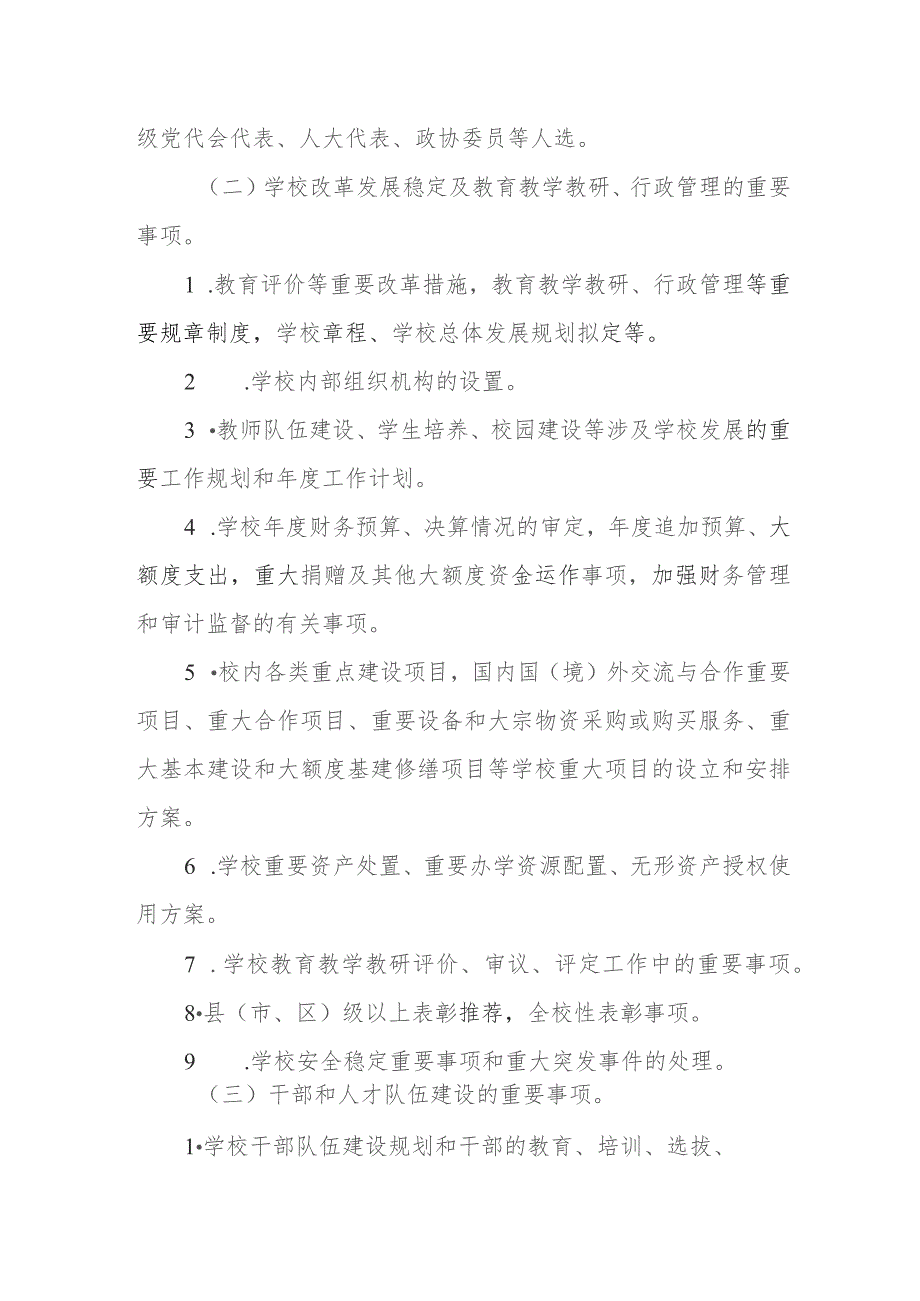 级党代会代表、人大代表、政协委员等人选。
（二）学校改革发展稳定及教育教学教研、行政管理的重要
事项。
1 .教育评价等重要改革措施，教育教学教研、行政管理等重
要规章制度，学校章程、学校总体发展规划拟定等。
2 .学校内部组织机构的设置。
3 •教师队伍建设、学生培养、校园建设等涉及学校发展的重
要工作规划和年度工作计划。
4 .学校年度财务预算、决算情况的审定，年度追加预算、大
额度支出，重大捐赠及其他大额度资金运作事项，加强财务管理
和审计监督的有关事项。
5 •校内各类重点建设项目，国内国（境）外交流与合作重要
项目、重大合作项目、重要设备和大宗物资采购或购买服务、重
大基本建设和大额度基建修缮项目等学校重大项目的设立和安排
方案。
6 .学校重要资产处置、重要办学资源配置、无形资产授权使
用方案。
7 .学校教育教学教研评价、审议、评定工作中的重要事项。
8•县（市、区）级以上表彰推荐，全校性表彰事项。
9 .学校安全稳定重要事项和重大突发事件的处理。
（三）干部和人才队伍建设的重要事项。
1•学校干部队伍建设规划和干部的教育、培训、选拔、